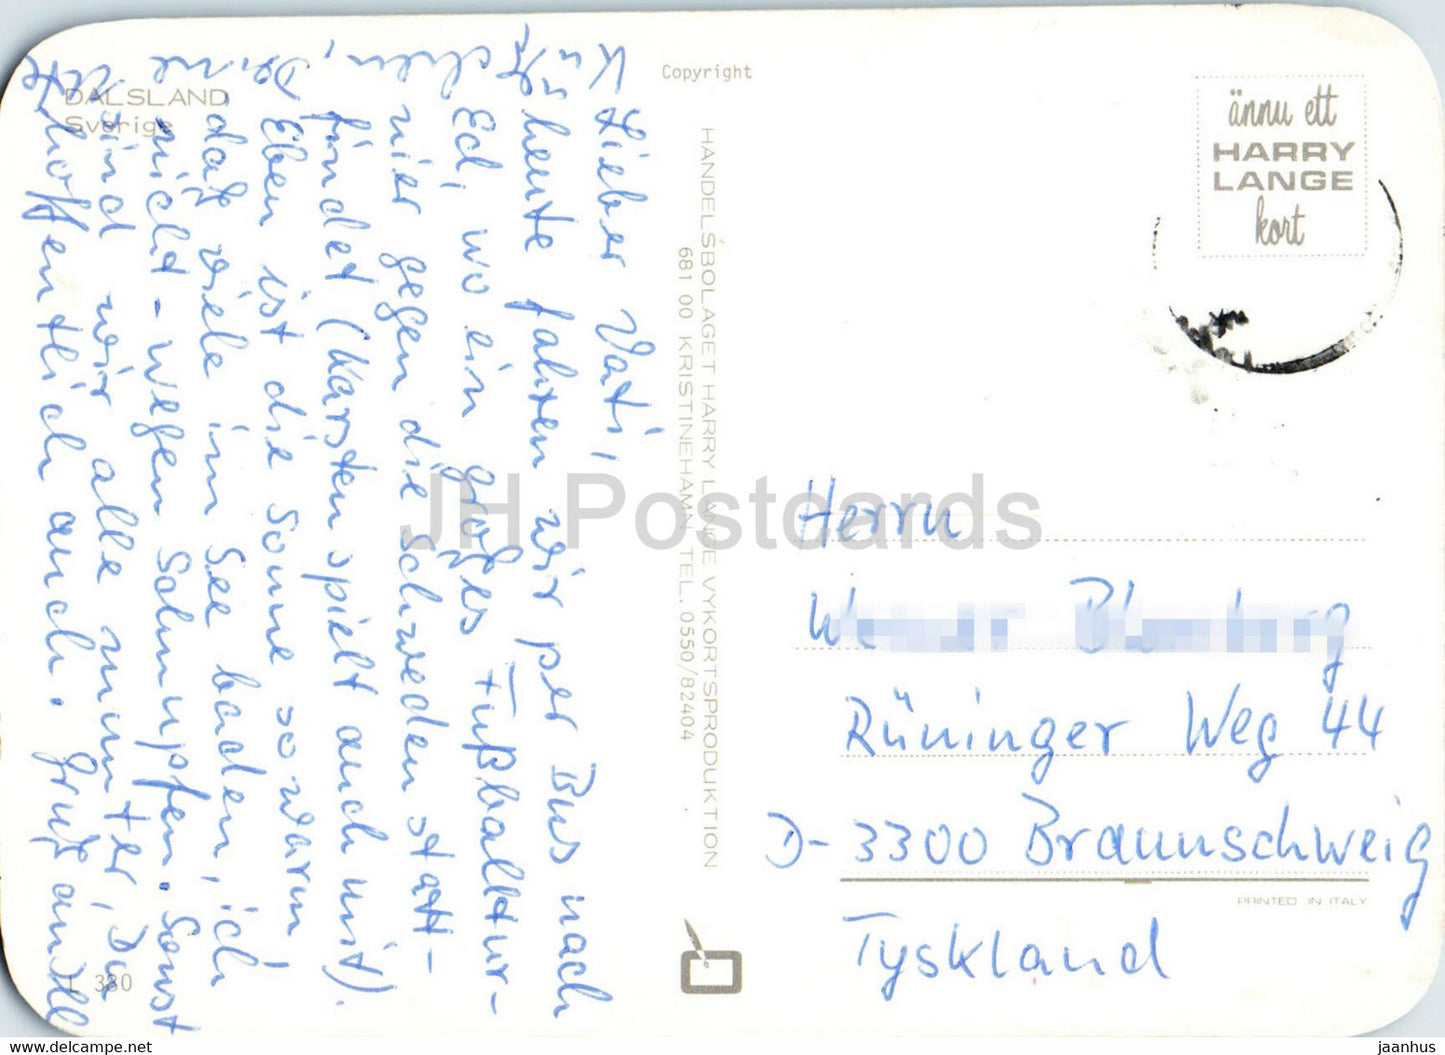 DALSLAND
Sverige
Copyright
ännu ett
HARRY
LANGE
kort
Lieber Vati,
heute fahren wir per Bus nach
Ed, wo ein großes Fußballtur-
nier gegen die Schweden statt-
findet (Karsten spielt auch mit).
Eben ist die Sonne so warm,
daß viele im See baden, ich
nicht - wegen Schnupfen. Sonst
sind wir alle munter, Du
hoffentlich auch. Gruß an alle
Deine
HANDELSBOLAGET HARRY LANGE VYKORTSPRODUKTION
681 00 KRISTINEHAMN TEL. 0550/82404
Herrn
Rüninger Weg 44
D-3300 Braunschweig
Tyskland
PRINTED IN ITALY
L 380
JH Postcards
www.delcampe.net
jaanhus